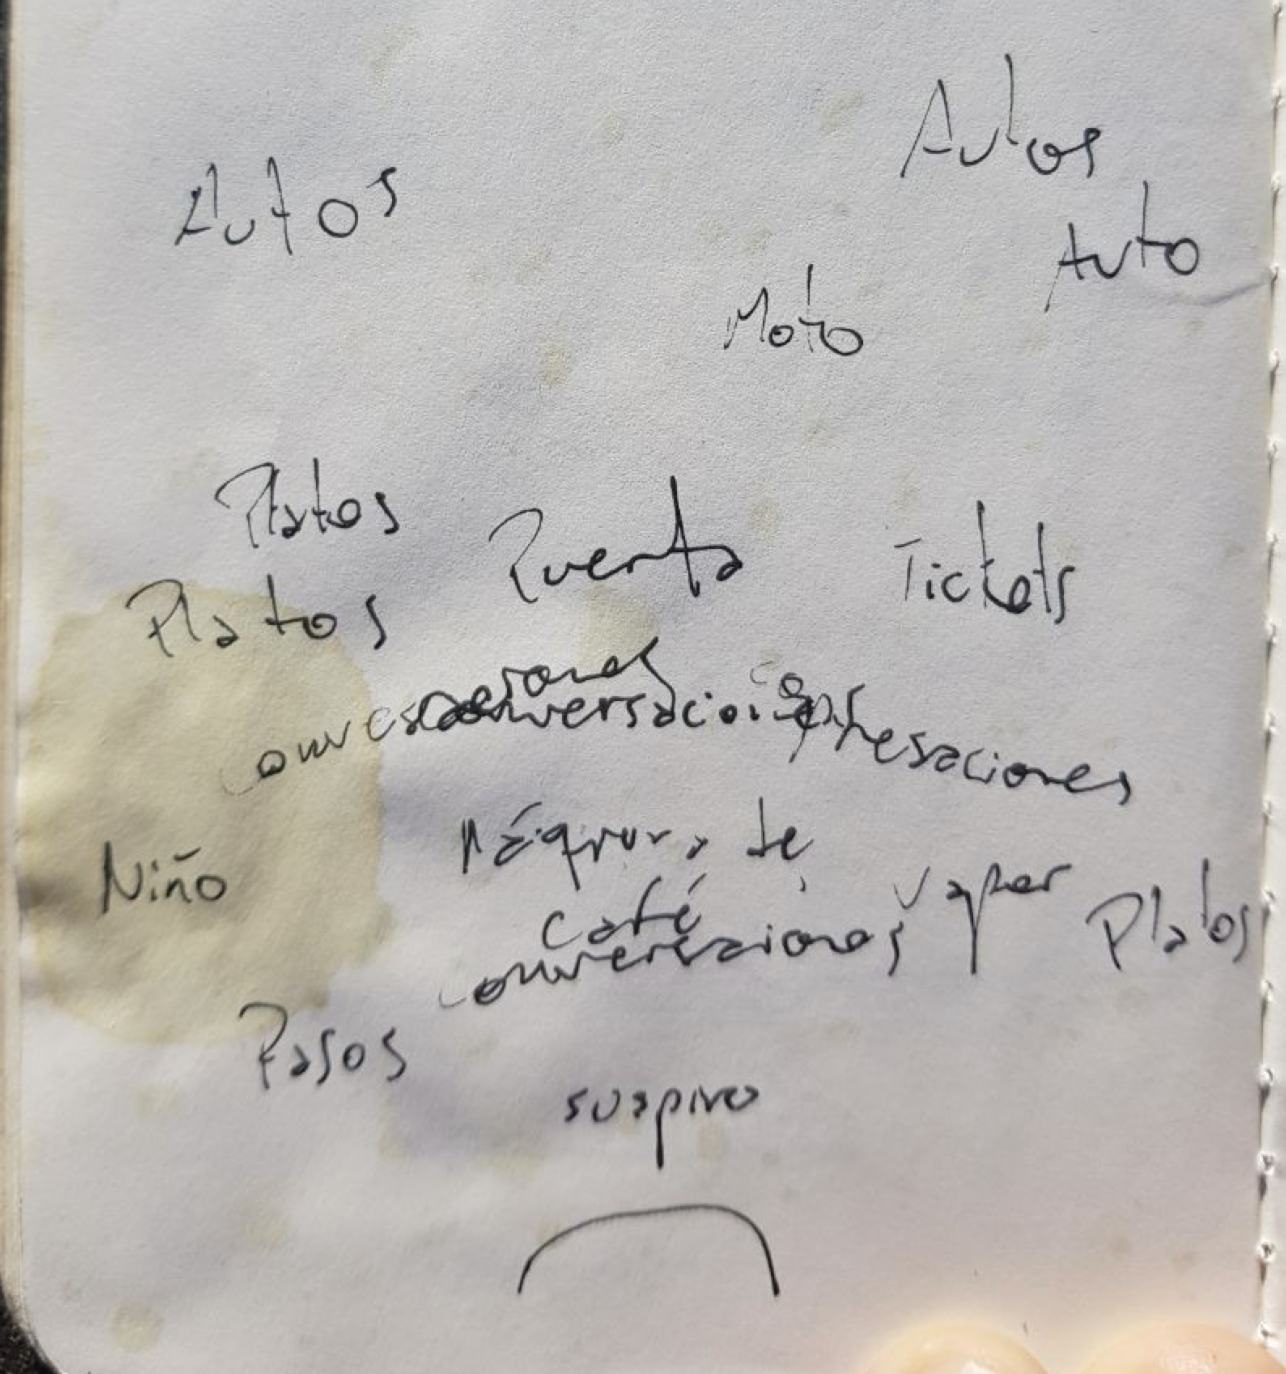 Autos
Autos
Auto
Moto
Platos
Puerta
Tickets
Platos
conversaciones
conversaciones
conversaciones
Máquina de
café
Niño
vapor
Platos
conversaciones
Pasos
suspiro